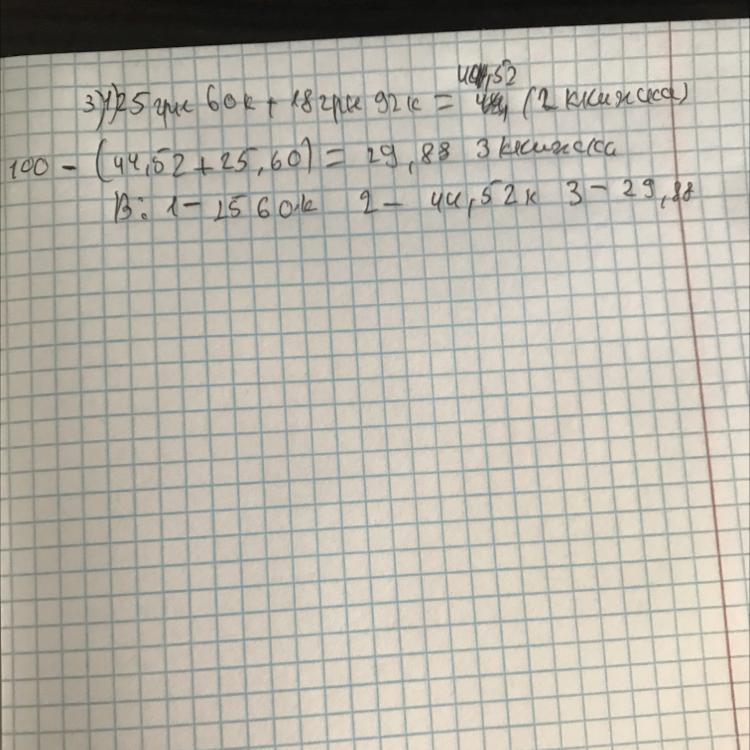 44,52
3) 1) 25 грн 60 к + 18 грн 92 к = (2 книжка)
100 - (44,52 + 25,60) = 29,88 3 книжка
В: 1 - 25 60 к 2 - 44,52 к 3 - 29,88